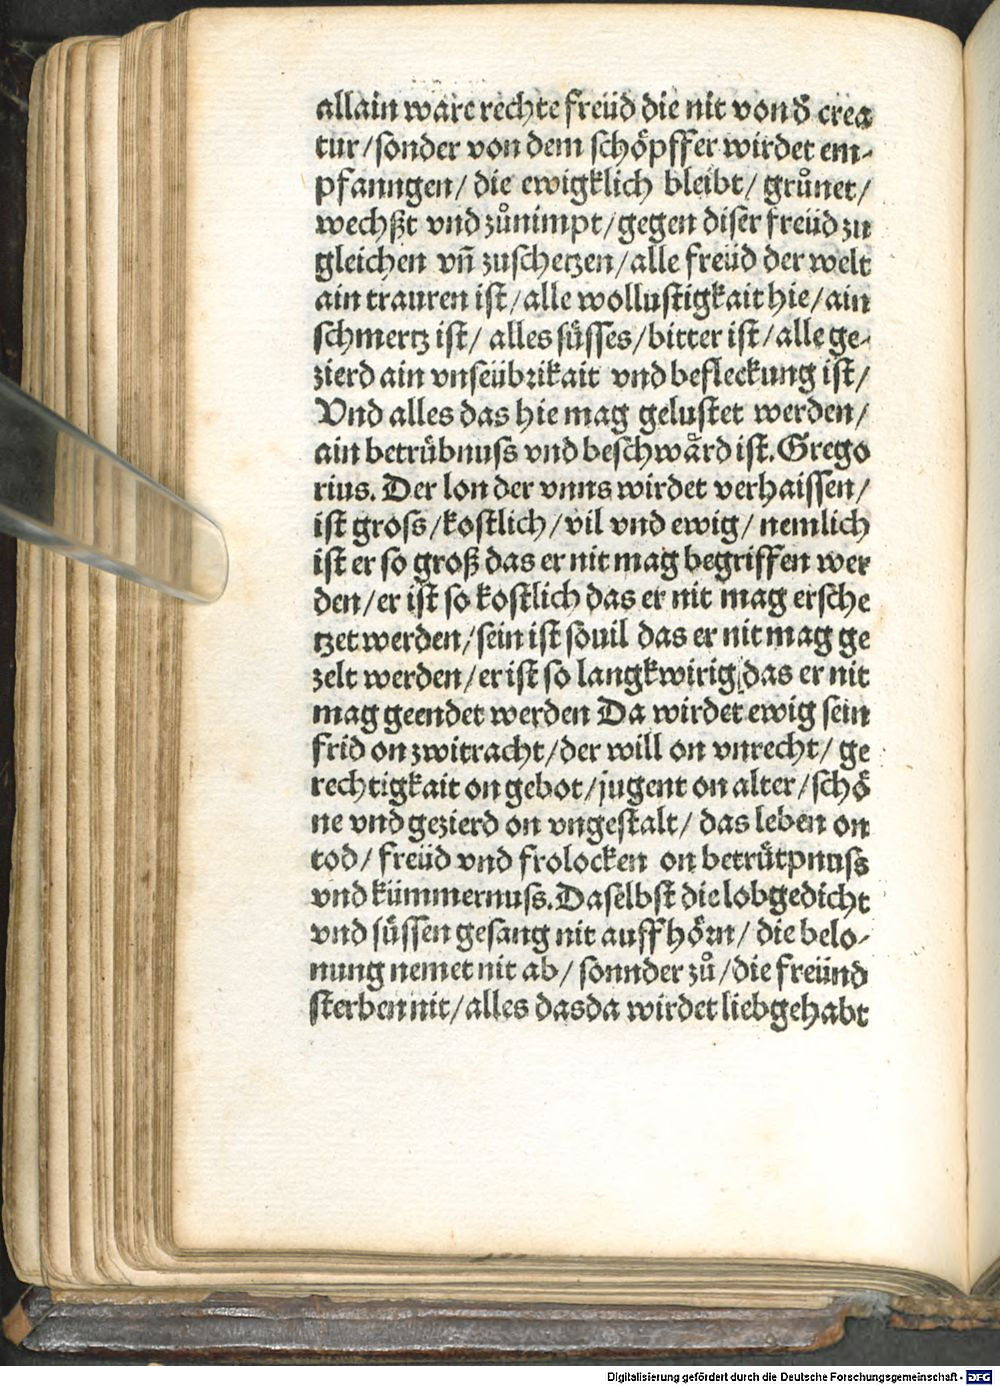 allain ware rechte freüd die nit von đ crea
tur/sonder von dem schöpffer wirdet em-
pfanngen/ die ewigklich bleibt/ grůnet/
wechßt vnd zůnimpt/gegen diser freüd zu
gleichen vñ zuschetzen/alle freüd der welt
ain trauren ist/alle wollustigkait hie/ain
schmertz ist/ alles süsses/bitter ist/alle ge-
zierd ain vnseübrikait vnd befleckung ist/
Vnd alles das hie mag gelustet werden/
ain betrübnuss vnd beschwärd ist. Grego
rius. Der lon der vnns wirdet verhaissen/
ist gross/kostlich/vil vnd ewig/ nemlich
ist er so groß das er nit mag begriffen wer
den/er ist so kostlich das er nit mag ersche
tzet werden/sein ist souil das er nit mag ge
zelt werden/er ist so langkwirig das er nit
mag geendet werden Da wirdet ewig sein
frid on zwitracht/der will on vnrecht/ ge
rechtigkait on gebot/jugent on alter/schö
ne vnd gezierd on vngestalt/ das leben on
tod/ freüd vnd frolocken on betrütpnuss
vnd kümmernuss. Daselbst die lobgedicht
vnd süssen gesang nit auffhörn/ die belo-
nung nemet nit ab/ sonnder zů/die freünd
sterben nit/alles das da wirdet lieb gehabt
Digitalisierung gefördert durch die Deutsche Forschungsgemeinschaft - DFG